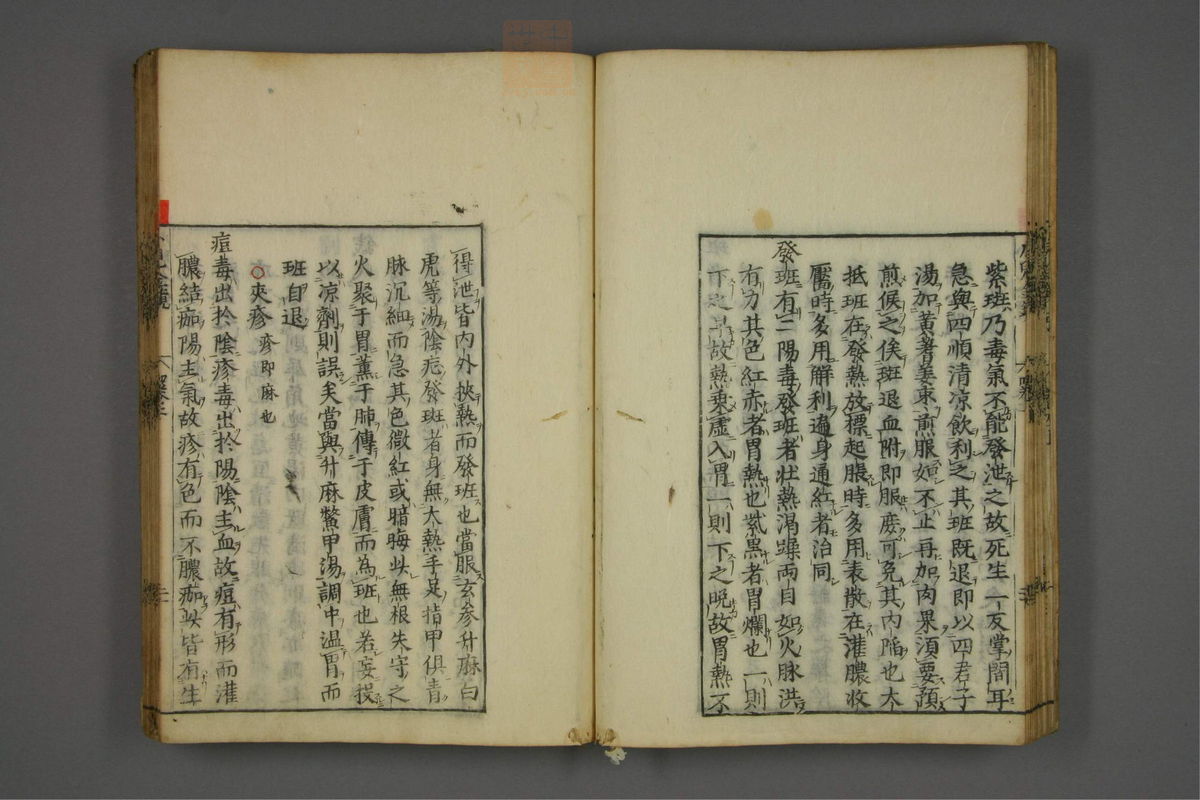 紫班乃毒氣不能發泄之故死生一反掌間耳
急與四順清凉飲利之其班既退即以四君子
湯加黄耆姜棗煎服如不止再加肉果須要預
煎候之俟班退血附即服庶可免其内陥也大
抵班在發熱放標起脹時多用表散在灌膿收
靨時多用解利遍身通紅者治同
發班有二陽毒發班者壮熱渇躁両目如火脉洪
有力其色紅赤者胃熱也紫黒者胃爛也一則
下之早故熱乗虚入胃一則下之晩故胃熱不
得泄皆内外挾熱而發班也當服玄参升麻白
虎等湯陰症發班者身無大熱手足指甲倶青
脉沉細而急其色微紅或暗晦此無根失守之
火聚于胃薫于肺傳于皮膚而為班也若妄投
以凉劑則誤矣當與升麻鱉甲湯調中温胃而
班自退
○夾疹 疹即麻也
痘毒出於陰疹毒出於陽陰主血故痘有形而灌
膿結痂陽主氣故疹有色而不膿痂此皆有生